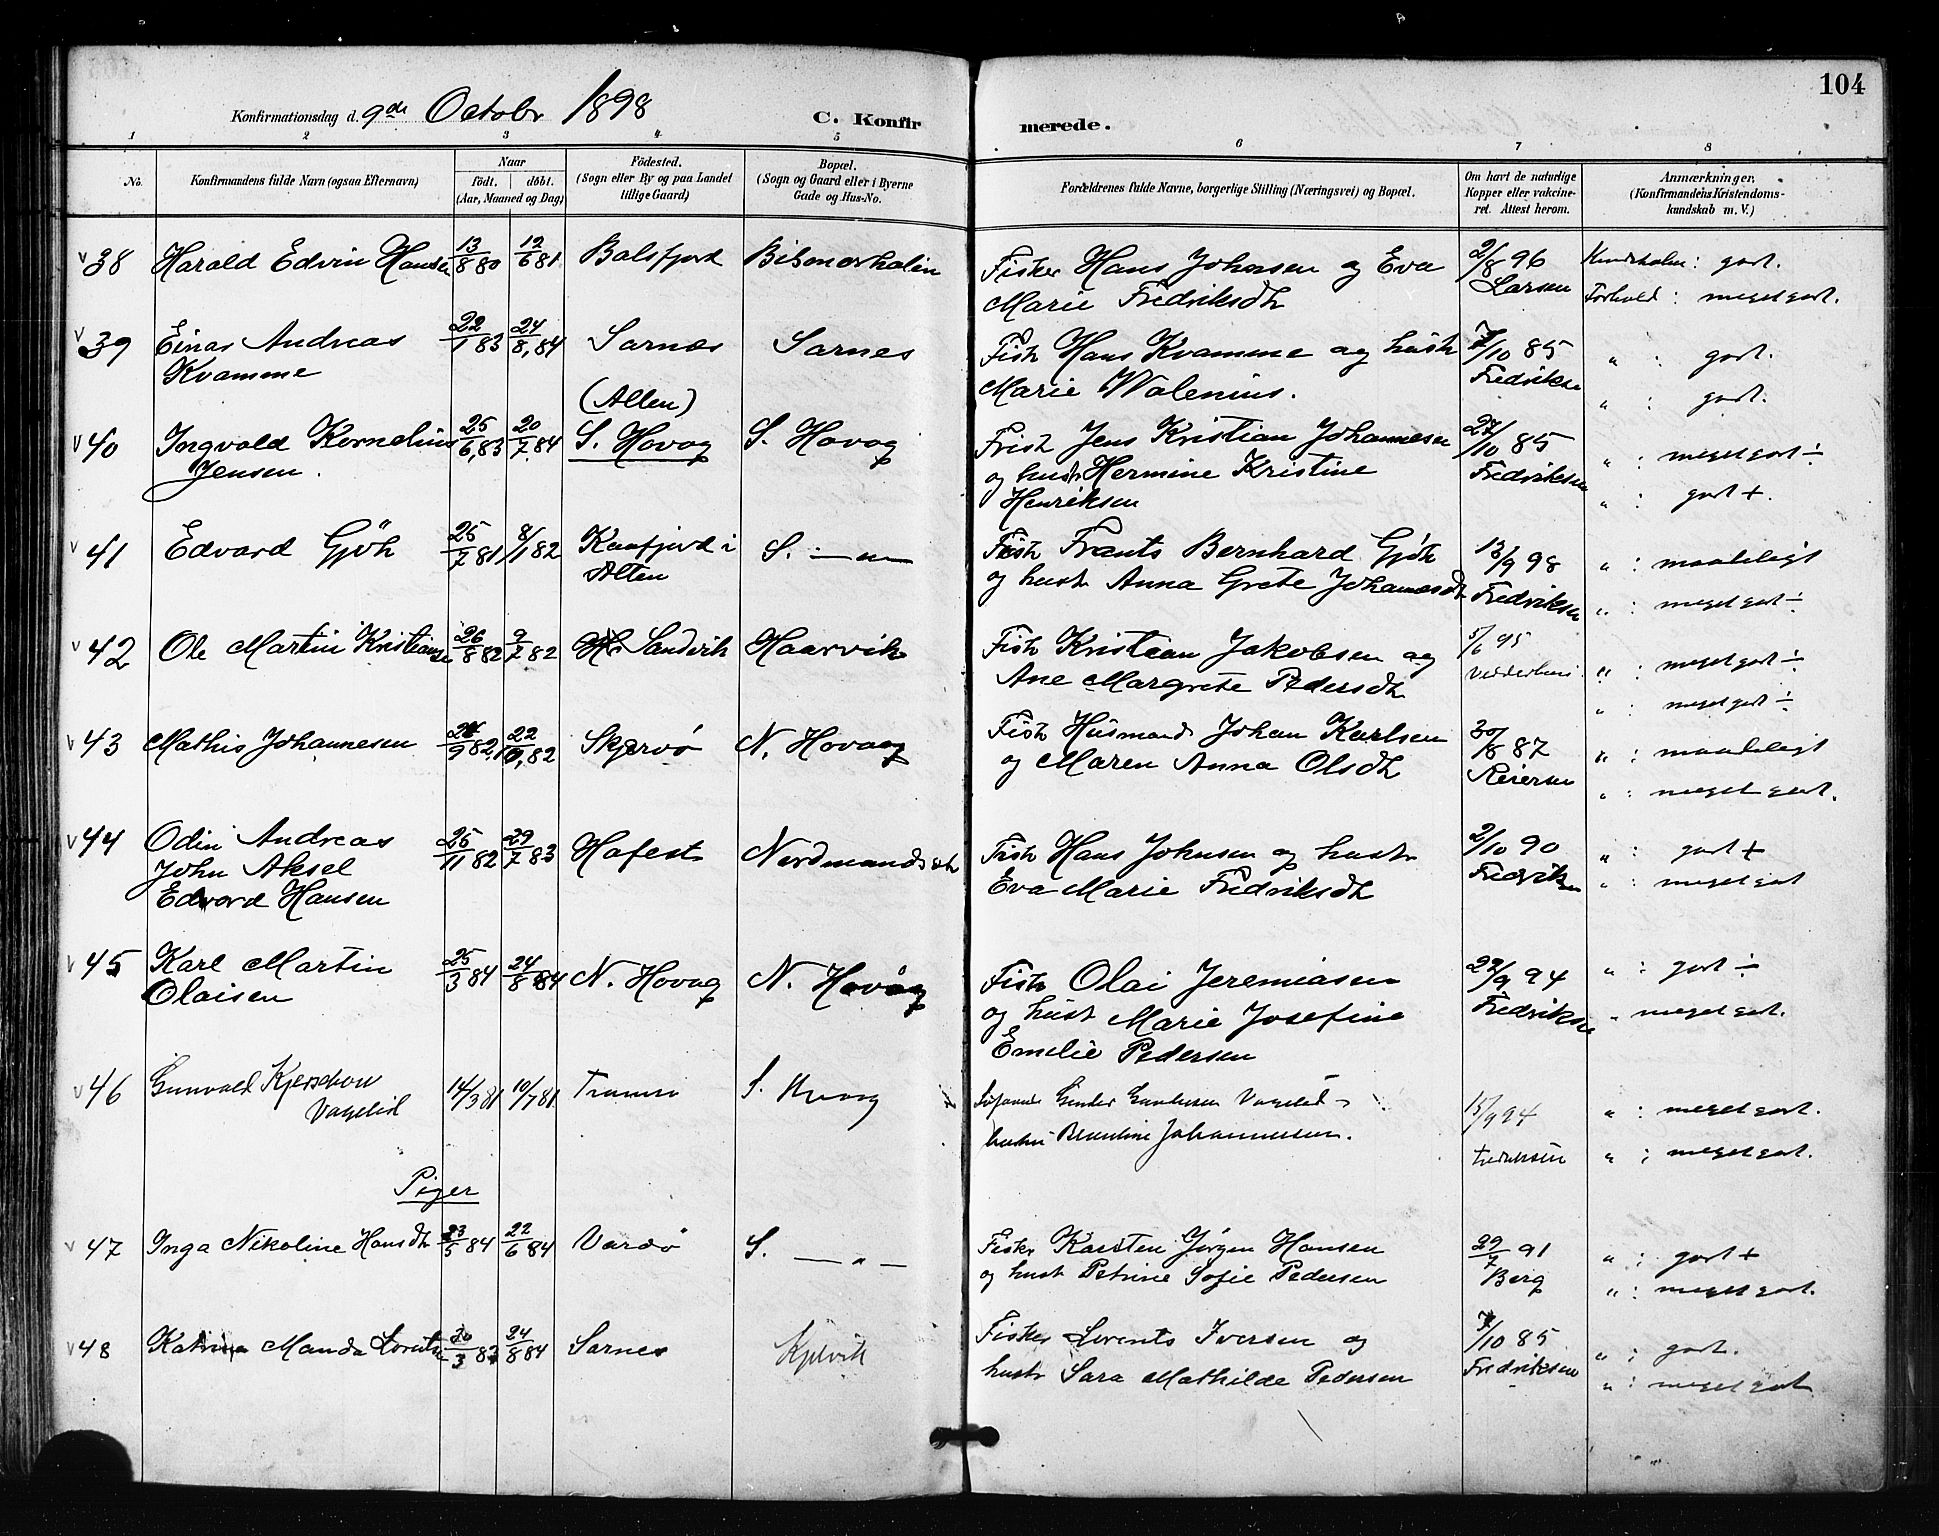 104
Konfirmationsdag d. 9de Octobr 1898
C. Konfirmerede.
1 2 3 4 5 6 7 8
No.
Konfirmandens fulde Navn (ogsaa Efternavn)
Naar
födt. döbt.
(Aar, Maaned og Dag)
Födested.
(Sogn eller By og paa Landet
tillige Gaard)
Bopæl.
(Sogn og Gaard eller i Byerne
Gade og Hus-No.
Forældrenes fulde Navne, borgerlige Stilling (Næringsvei) og Bopæl.
Om havt de naturlige
Kopper eller vakcine-
ret. Attest herom.
Anmærkninger.
(Konfirmandens Kristendoms-
kundskab m. V.)
38 Harald Edvin Hansen 13/8 80 12/6 81 Balsfjord Fisker Hans Johnsen og Eva 2/8 96 godt.
Marie Fredriksdtr Larsen Forhold: meget godt.
39 Einar Andreas 22/1 83 24/8, 84 Sarnes Sarnes Fisk Hans Kvamme og hustr 7/10 85 " : godt.
Kvamme Marie Walenius. Fredriksen " : godt.
(Alten)
40 Ingvald Kornelius 25/6, 83 20/7 84 S. Hovag S. Hovag Jens Kristian Johannesen 27/10 85 " : meget godt ÷
Jensen. og hustr Hermine Kristine Fredriksen " : godt +.
Henriksen
41 Edvard Gjöh 25/7 81 8/1 82 Kaafjord i S. — " — Fisk Frants Bernhard 13/9 98 " : maadeligt
Alten og hust Anna Grete Johannesdt Fredriksen " : meget godt ÷
42 Ole Martin Kristiansen 26/8 82 9/7 82 Sandvik Haarvik Fisk Kristian Jakobsen og 5/6 95 " : meget godt ÷
Ane Margrete Pedersdtr " : meget godt ÷
43 Mathis Johannesen 82 22 82 Skjervö N. Hovaag Fisk Husmand Johan Karlsen 30/8 87 " : maadeligt
og Maren Anna Olsdtr Reiersen " : meget godt.
44 Odin Andreas 25/11 82 29/7 83 Hafest Fisk Hans Johnsen og hustr 2/10 90 " : godt +
John Aksel Eva Marie Fredriksdtr Fredriksen " : meget godt
Edvard Hansen
45 Karl Martin 25/3 84 24/8 84 N. Hovag N. Hovåg Fisk Olai Jeremiasen 22/9 94 " : godt ÷
Olaisen og hust Marie Josefine Fredriksen " meget godt.
Emelie Pedersen
46 Gunvald 14/3 81 10/7 81 Tromsö S. Hvaag 15/9 94 " : meget godt.
Johannessen. Fredriksen " : meget godt.
Piger
47 Inga Nikoline Hansdtr 23/5 84 22/6 84 Vardö S. — " — Fisker Karsten Jørgen Hansen 29/7 91 " : godt +
og hust Petrine Sofie Pedersen Berg " : meget godt.
48 Manda 20/3 83 24/8 84 Sarnes Kjelvik Fisker Lorents Iversen og 7/10 85 " : godt.
hustr Sara Mathilde Pedersen Fredriksen " : meget godt